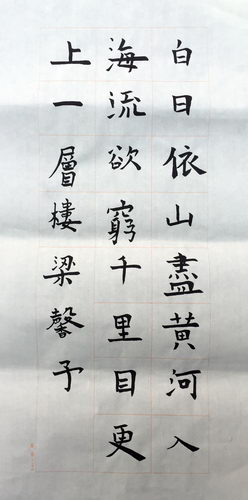 白日依山盡黃河入
海流欲窮千里目更
上一層樓梁馨予